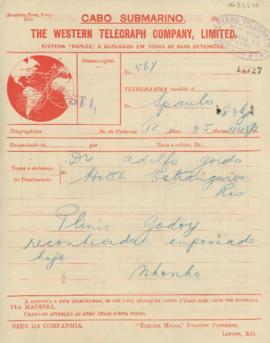 CABO SUBMARINO.
THE WESTERN TELEGRAPH COMPANY, LIMITED.
SYSTEMA "DUPLEX" E DUPLICADO EM TODAS AS SUAS EXTENSÕES.
Observacções.
No. 561
TELEGRAMMA recebido de
S paulo
Telegraphista
No. de Palavras 10
Data 25
Despachado ás
por
Taxa a cobrar, Rs.
Nome e endereço do Destinatario:
Dr Adolfo gordo
Hotel Estrangeiros
Rio
Plinio Godoy
reconticada empossado
hoje
Nhonho
A RESPOSTA A ESTE TELEGRAMMA, SE FÔR PARA QUALQUER PONTO D'ALEM-MAR, DEVE SER ENTREGUE
VIA MADEIRA.
CHAMA-SE ATTENÇÃO AO AVISO ATRAS D'ESTA FORMA.
SEDE DA COMPANHIA.
"ELECTRA HOUSE," FINSBURY PAVEMENT,
LONDON, E.C.